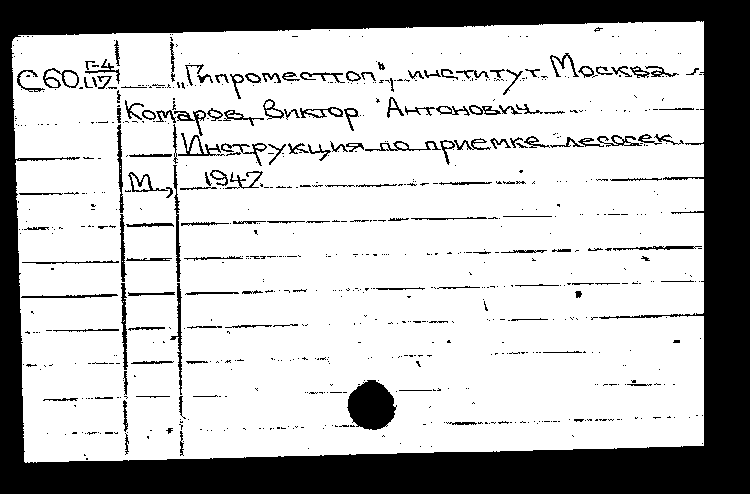 С60 Г-4/117 „Гипроместтоп", институт. Москва
Комаров, Виктор Антонович.
Инструкция по приемке лесосек.
М., 1947.